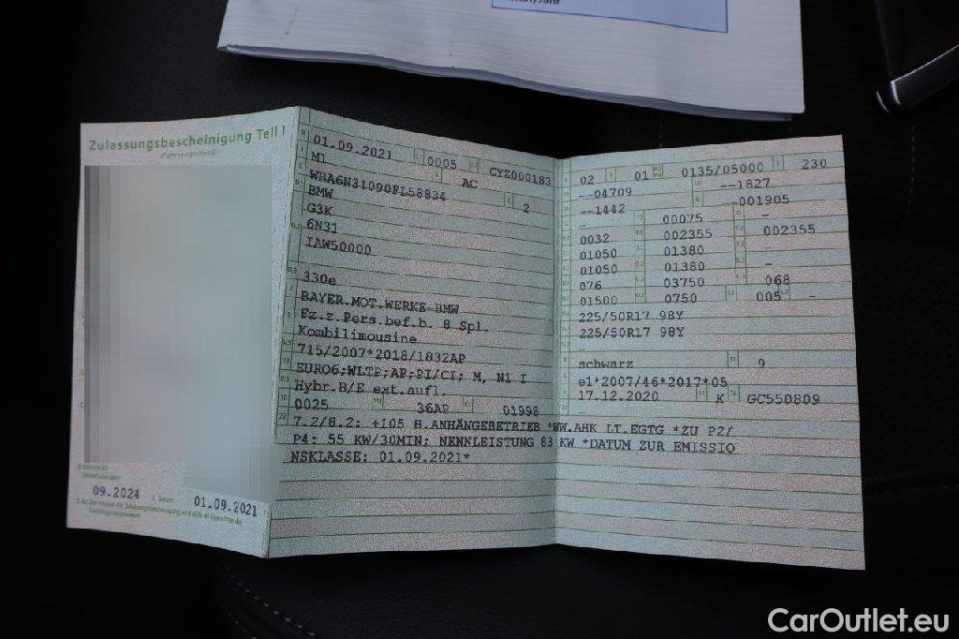 Zulassungsbescheinigung Teil I
(Fahrzeugschein)
09.2024
01.09.2021
01.09.2021 0005 CYZ000183
M1 AC
WBA6N31090FL58834 2
BMW
G3K
6N31
IAW50000
330e
BAYER.MOT.WERKE-BMW
Fz.z.Pers.bef.b. 8 Spl.
Kombilimousine
715/2007*2018/1832AP
EURO6;WLTP;AP;PI/CI; M, N1 I
Hybr.B/E ext.aufl.
0025 36AP 01998
7.2/8.2: +105 B.ANHÄNGEBETRIEB *WW.AHK LT.EGTG *ZU P2/
P4: 55 KW/30MIN; NENNLEISTUNG 83 KW *DATUM ZUR EMISSIO
NSKLASSE: 01.09.2021*
02 01 0135/05000 230
--04709 --1827
--1442 --001905
- 00075 -
0032 002355 002355
01050 01380
01050 01380 -
076 03750 068
01500 0750 005 -
225/50R17 98Y
225/50R17 98Y
-
schwarz 9
e1*2007/46*2017*05
17.12.2020 K GC550809
CarOutlet.eu